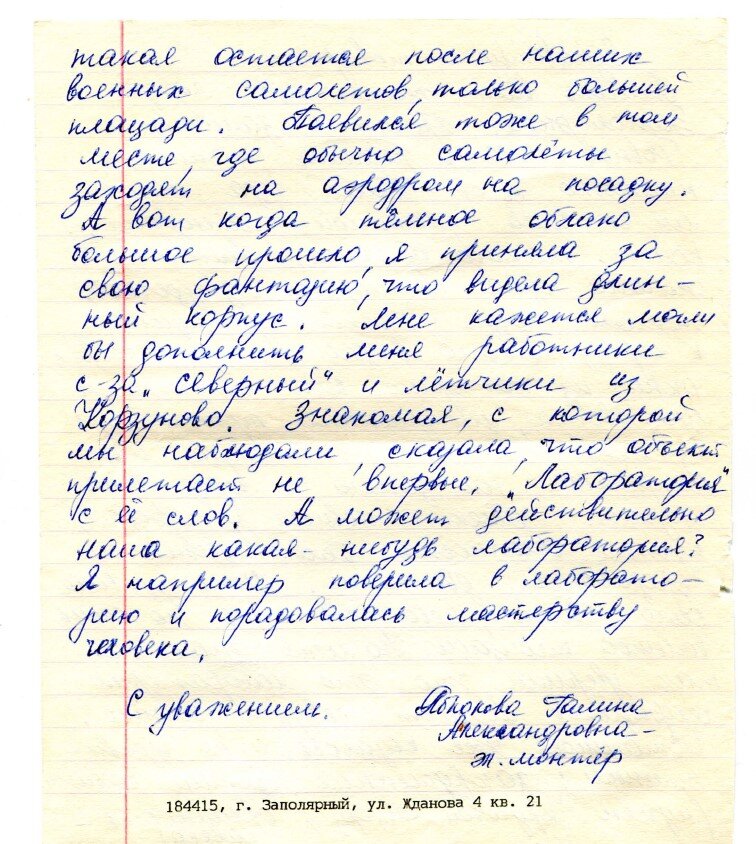 такая остается после наших
военных самолетов, только большей
площади. Появился тоже в том
месте, где обычно самолёты
заходят на аэродром на посадку.
А вот когда тёмное облако
большое прошло, я приняла за
свою фантазию, что видела длин-
ный корпус. Мне кажется могли
бы дополнить меня работники
с-за „Северный" и лётчики из
Корзуново. Знакомая, с которой
мы наблюдали, сказала, что объект
прилетает не впервые. „Лаборатория"
с её слов. А может действительно
наша какая-нибудь лаборатория?
Я например поверила в лаборато-
рию и порадовалась мастерству
человека.
С уважением. Галина
Александровна -
эл. монтёр
184415, г. Заполярный, ул. Жданова 4 кв. 21